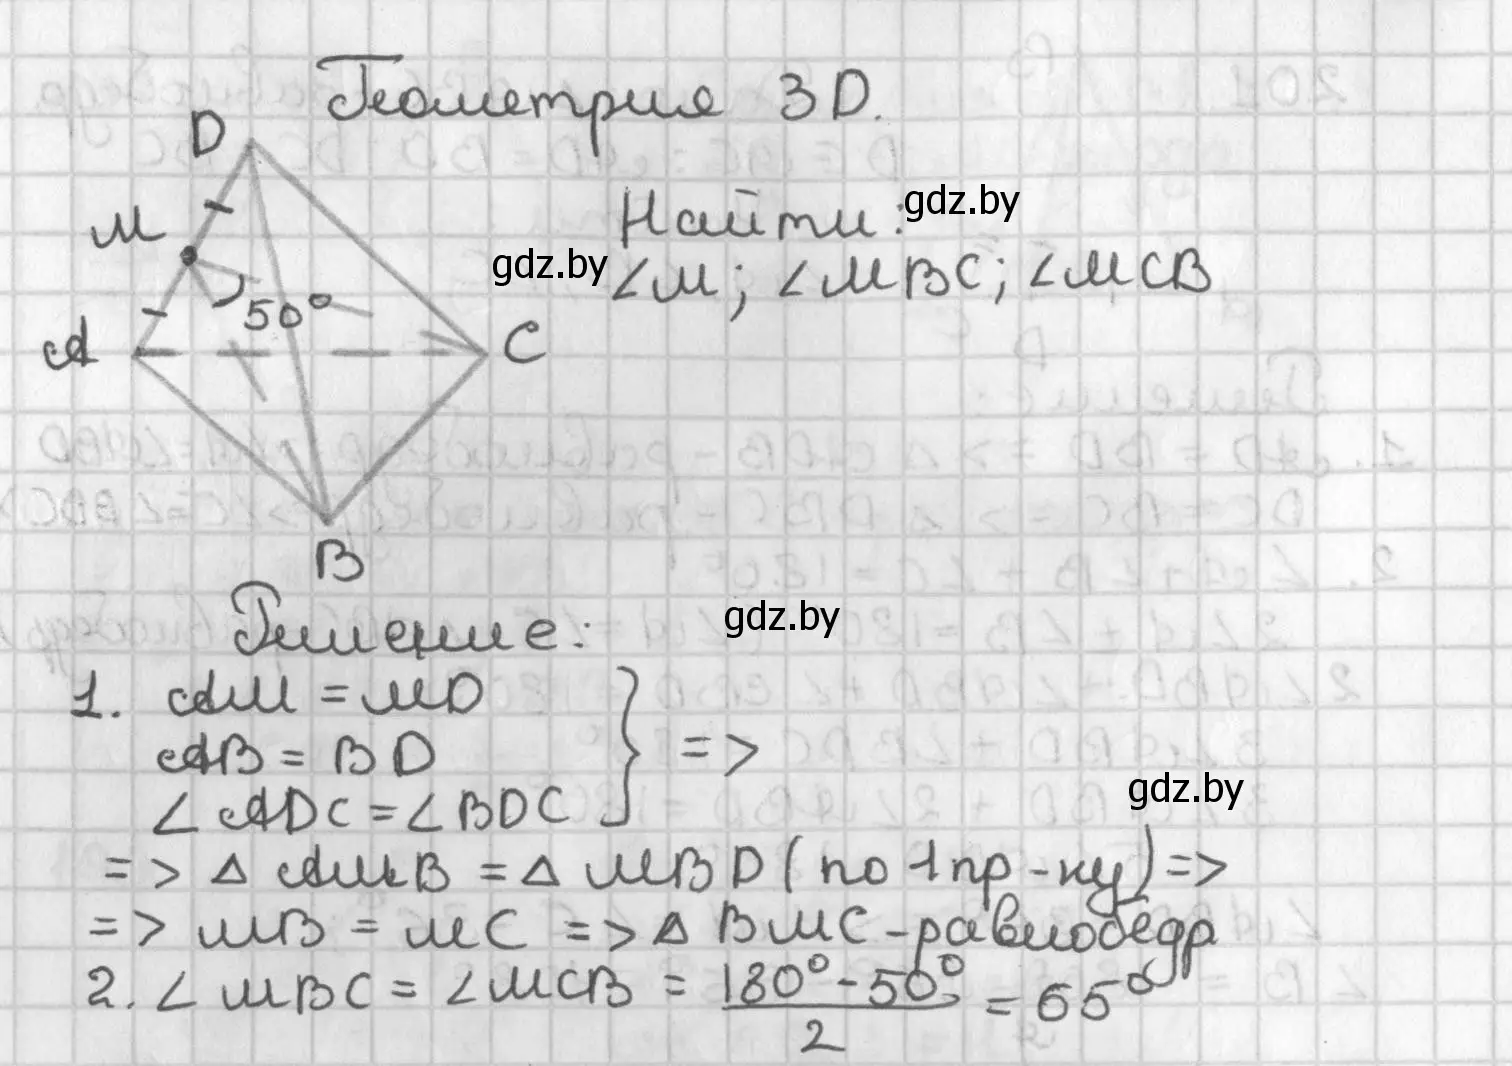 Геометрия 3D.
D
M
50°
A
C
B
Найти:
∠M; ∠MBC; ∠MCB
gdz.by
gdz.by
Решение:
gdz.by
1. AM = MD
AB = BD
∠ADC = ∠BDC } =>
gdz.by
=> △ AMB = △ MBD (по 1 пр-ку) =>
=> MB = MC => △ BMC - равнобедр
2. ∠MBC = ∠MCB = 180° - 50° / 2 = 65°